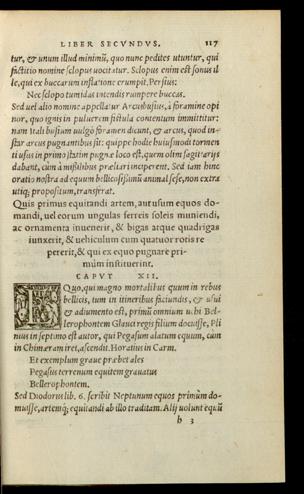 LIBER SECVNDVS. 117
tur, & unum illud minimũ, quo nunc pedites utuntur, qui
fictitio nomine sclopus uocitatur. Sclopus enim est sonus il
le, qui ex buccarum inflatione erumpit. Persius:
Nec sclopo tumidas intendis rumpere buccas.
Sed uel alio nomine appellatur Arcubusius, à foramine opi
nor, quo ignis in puluerem fistula contentum immittitur:
nam Itali busium uulgò foramen dicunt, & arcus, quod in-
star arcus pugnantibus sit: quippe hodie huiusmodi tormen
ti usus in primo statim pugnæ loco est, quem olim sagittarijs
dabant, cũm à missilibus prælium inciperent. Sed iam hinc
oratio nostra ad equum bellicosissimũ animal sese, non extra
utiq; propositum, transferat.
Quis primus equitandi artem, aut usum equos do-
mandi, uel eorum ungulas ferreis soleis muniendi,
ac ornamenta inuenerit, & bigas atque quadrigas
iunxerit, & uehiculum cum quatuor rotis re
pererit, & qui ex equo pugnare pri-
mùm instituerint.
CAPVT XII.
EQuo, qui magno mortalibus quum in rebus
bellicis, tum in itineribus faciundis, & usui
& adiumento est, primũ omnium uehi Bel-
lerophontem Glauci regis filium docuisse, Pli
nius in septimo est autor, qui Pegasum alatum equum, cùm
in Chimæram iret, ascendit. Horatius in Carm.
Et exemplum graue præbet ales
Pegasus terrenum equitem grauatus
Bellerophontem.
Sed Diodorus lib. 6. scribit Neptunum equos primùm do-
muisse, artemq́; equitandi ab illo traditam. Alij uolunt equũ
h 3